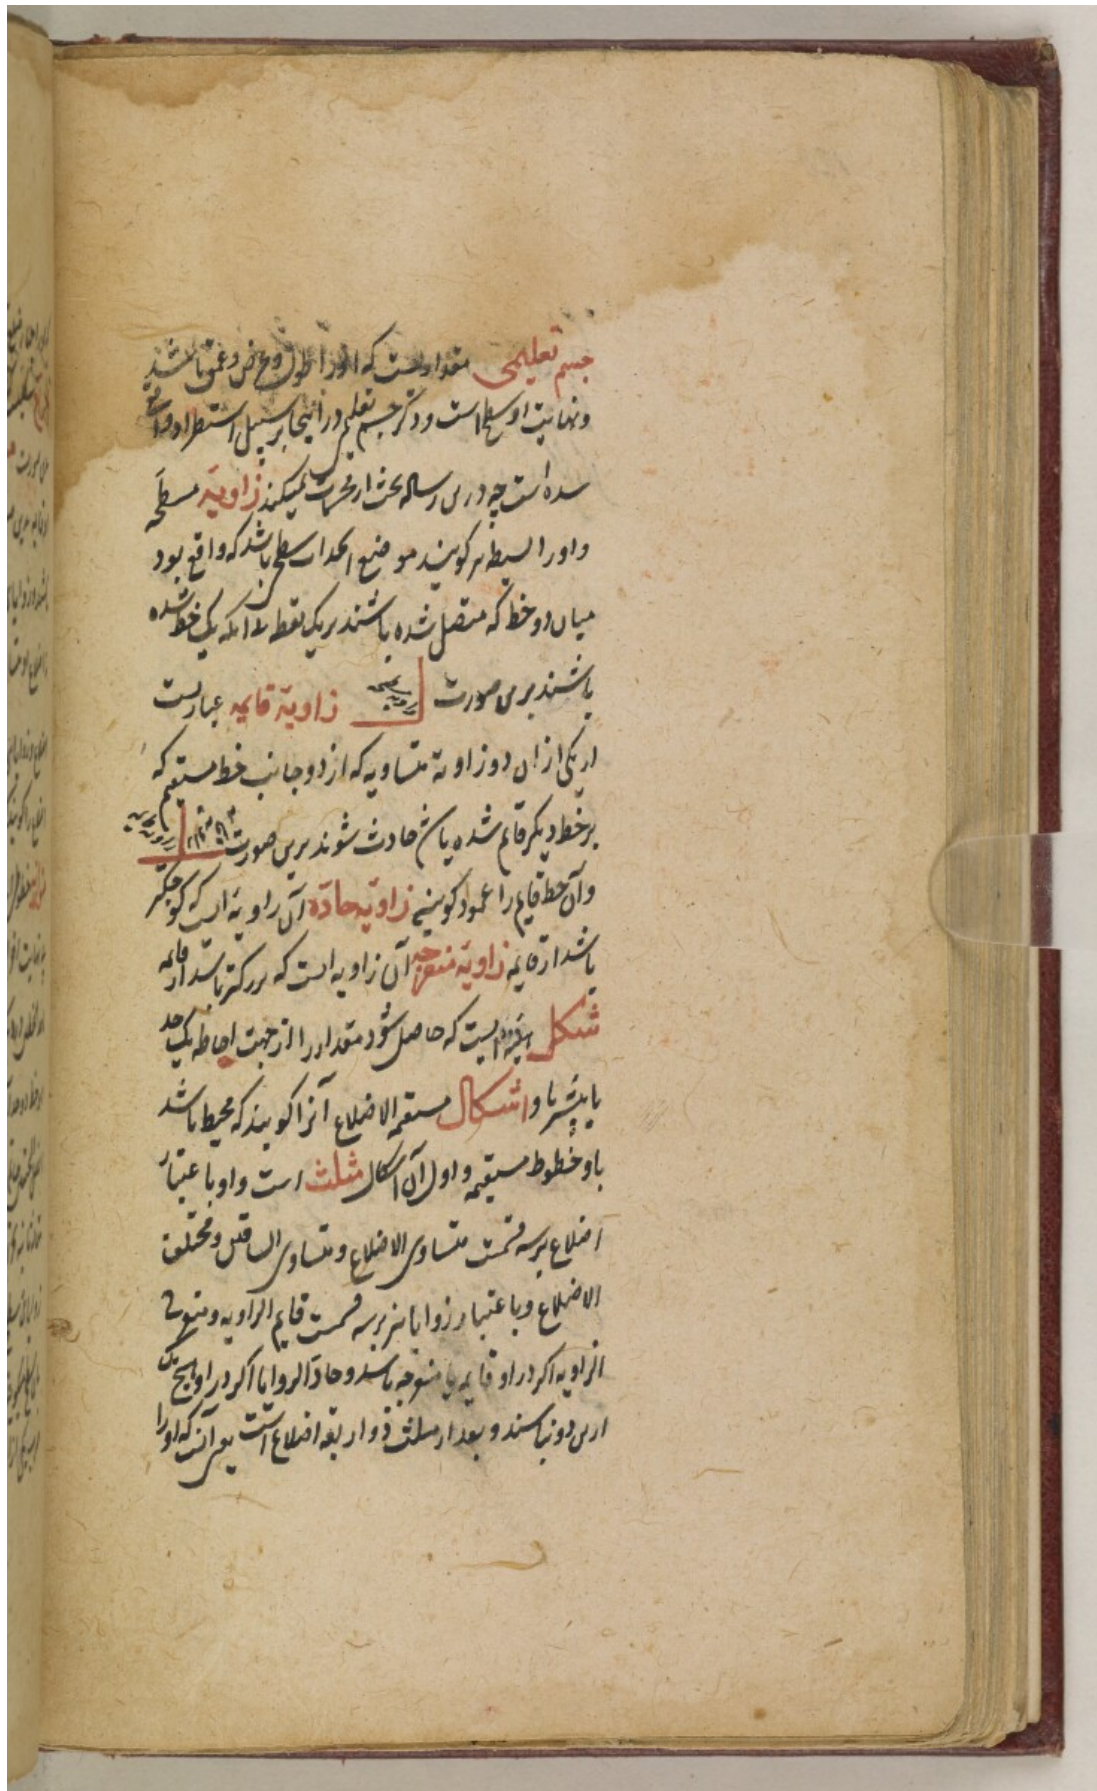 جسم تعلیمی مقداریست که او را طول و عرض و عمق باشد
و نهایت او سطح است و ذکر جسم تعلیمی در اینجا بر سبیل استطراد واقع
شده است چه درین رساله بحث از مجسمات نمیکند زاویهٔ مسطحه
و او را بسیطه نیز گویند موضع انحداب سطحی باشد که واقع بود
میان دو خط که متصل شده باشند بر یک نقطه بی آنکه یک خط شده
باشند برین صورت زاویهٔ قایمه عبارتست
از یکی از آن دو زاویهٔ متساویه که از دو جانب خط مستقیم که
بر خط دیگر قایم شده باشد حادث شوند برین صورت
و آن خط قایم را عمود گویند زاویهٔ حادّه آن زاویهٔ است که کوچکتر
باشد از قایمه زاویهٔ منفرجه آن زاویه است که بزرگتر باشد از قایمه
شکل هیٔتیست که حاصل شود مقدار را از جهت احاطه یک حد
یا بیشتر باو اشکال مستقیمة الاضلاع آنرا گویند که محیط باشد
باو خطوط مستقیمه و اول آن اشکال مثلث است و او باعتبار
اضلاع بر سه قسمست متساوی الاضلاع و متساوی الساقین و مختلف
الاضلاع و باعتبار زوایا نیز بر سه قسمست قایم الزاویه و منفرجة
الزاویه اگر در او قایمه یا منفرجه باشد و حادّ الزوایا اگر در او هیچ یک
ازین دو نباشند و بعد از مثلث ذو اربعة اضلاع است یعنی آنست که او را